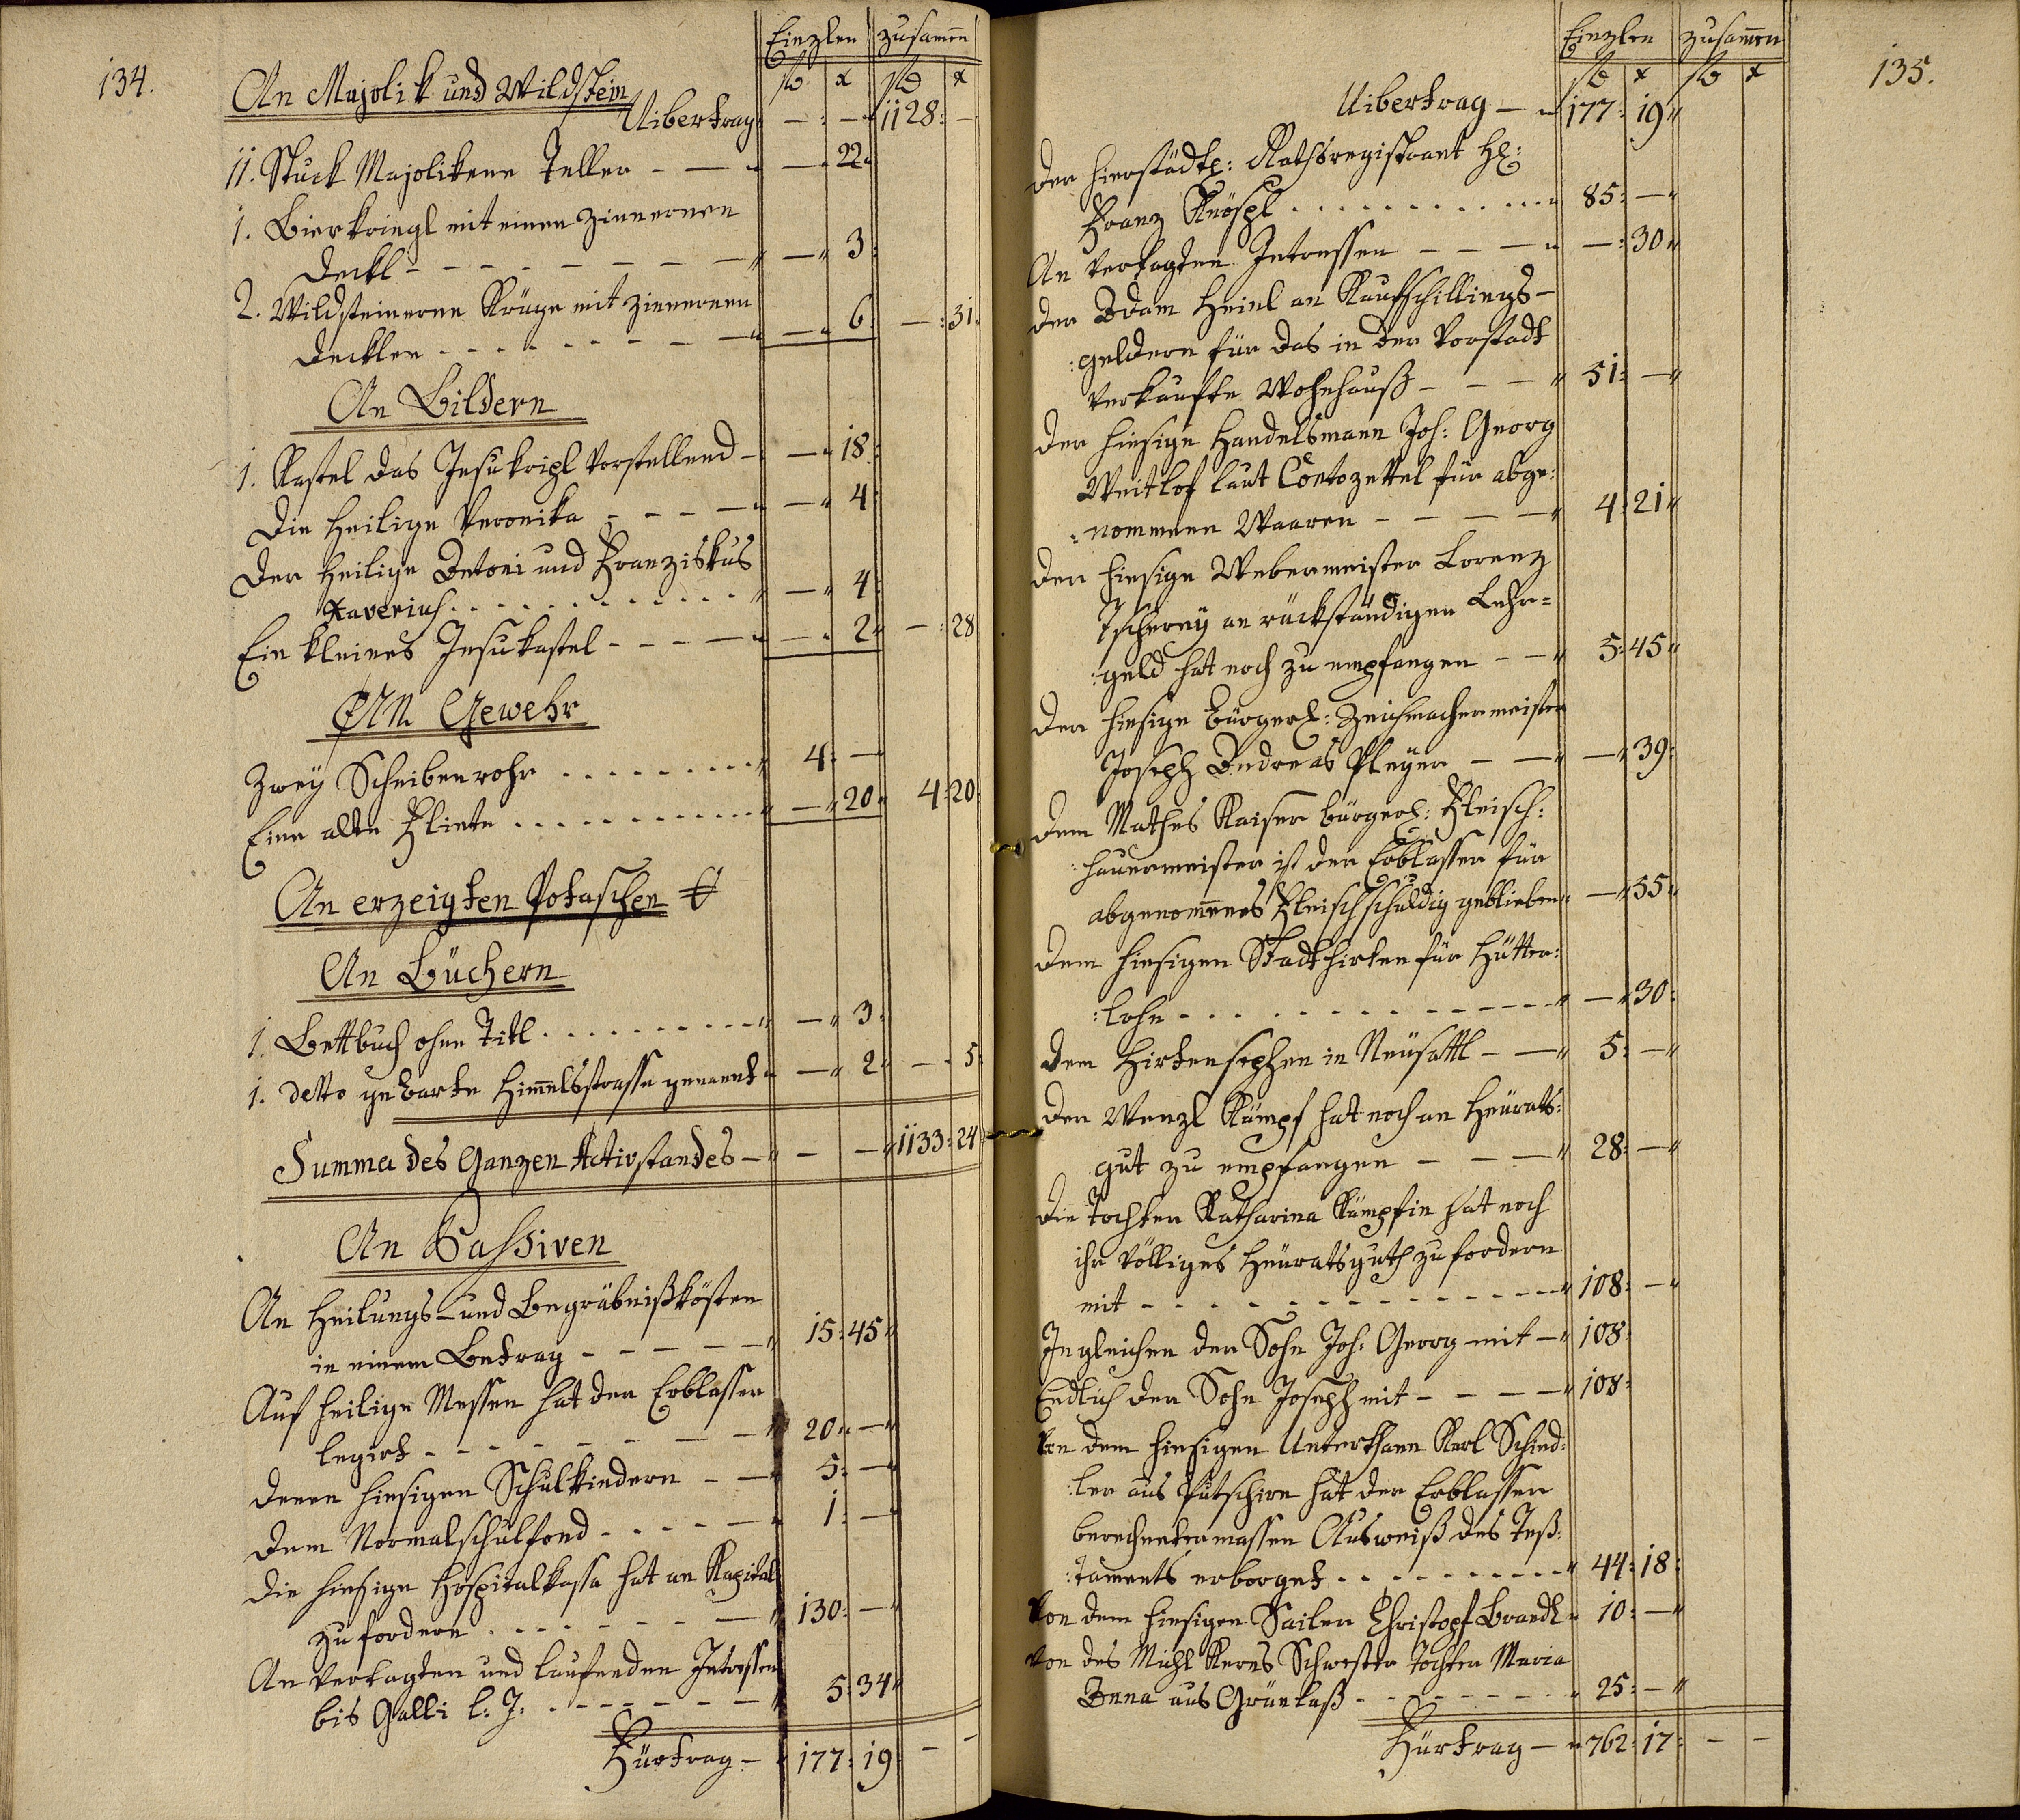 134.
Einzlen zusamen
fl x fl x
An Majolik und Wildstein
Uibertrag — : — " 1128 : —
11. Stuck Majolikene Teller - — " — " 22 "
1. Bierkriegl mit einen zinnernen
Deckl - - - - - - — " — " 3 :
2. Wildsteinerne Krüge mit zinnernen
Deckler - - - - - - — " — " 6 : — : 31.
An Bildern
1. Kastel das Jesukripl vorstellend - — " 18 :
Die Heilige Veronika - - - — " — " 4 :
Der Heilige Antoni und Franziskus
Xaverius . . . . . . . . . . " — " 4 :
Ein kleines Jesukastel - - - — " — " 2 " — : 28
An Gewehr
Zweÿ Scheibenrohr . . . . . . . . " 4 : —
Eine alte Flinte . . . . . . . . . . " — " 20 " 4 : 20
An erzeigten Potaschen
An Büchern
1. Bettbuch ohne Titl . . . . . . . . . " — " 3 :
1. detto Himelsstrasse genannt " — " 2 " — . 5 :
Summa des Ganzen Activstandes — " — — " 1133 : 24
An Passiven
An Heilungs- und Begräbnißkösten
in einem Betrag - - - - — " 15 : 45 "
Auf heilige Messen hat der Erblasser
legirt - - - - - - — — " 20 " — "
Denen hiesigen Schulkindern - — " 5 : — "
Dem Normalschulfond - - - - — " 1 : — "
Die hiesige Hospitalkassa hat an Kapital
zu fordern . - - - - - — " 130 : — "
An vertagten und laufenden Intressen
bis Galli l: J: . - - - - - — " 5 : 34 "
Fürtrag — " 177 : 19 : — —
135.
Einzlen zusamen
fl x fl x
Uibertrag — " 177 : 19 "
Der hierstädtl: Rathsregistrant H:
Franz Knöspl . . . . . . . . . . . " 85 : — "
An vertagten Intressen - - — " — : 30 "
Der Adam Heinl an Kaufschillings-
:geldern für das in der Vorstadt
verkaufte Wohnhauß - - — " 51 : — "
Der hiesige Handelsmann Joh: Georg
Weitlof laut Contozettel für abge:
:nommene Waaren - - — — " 4 : 21 "
Der hiesige Webermeister Lorenz
Tscherny an rückständigen Lehr=
:geld hat noch zu empfangen - — " 5 : 45 "
Der hiesige bürgerl: Zeichmachermeister
Joseph Andreas Pleyer - — " — " 39 :
Dem Mathes Kaiser bürgerl: Fleisch:
:hauermeister ist der Erblasser für
abgenommenes Fleisch schuldig geblieben " — " 55 "
Dem hiesigen Stadthirten für Hütter:
:lohn - . . . . . . - - - - — " — " 30 :
Dem Hirtensepphen in Neusattl - — " 5 : — "
Der Wenzl Kümpf hat noch an Heürats:
gut zu empfangen - - — " 28 : — "
Die Tochter Katharina Kümpfin hat noch
ihr völliges Heüratsguth zu fordern
mit - - - - - - - - - - — " 108 : — "
Ingleichen der Sohn Joh: Georg mit — " 108 :
Endlich der Sohn Joseph mit - - - — " 108 :
Von dem hiesigen Unterthann Karl Schind:
:ler aus Putschirn hat der Erblasser
berechnetermassen Ausweiß des Test:
:taments erborget . . . . . . . . . " 44 : 18 :
Von dem hiesigen Sailer Christoph Brandl " 10 : — "
Von des Michl Kerns Schwester Tochter Maria
Anna aus Grünlaß - - - - - - - " 25 : — "
Fürtrag — " 762 : 17 : — —